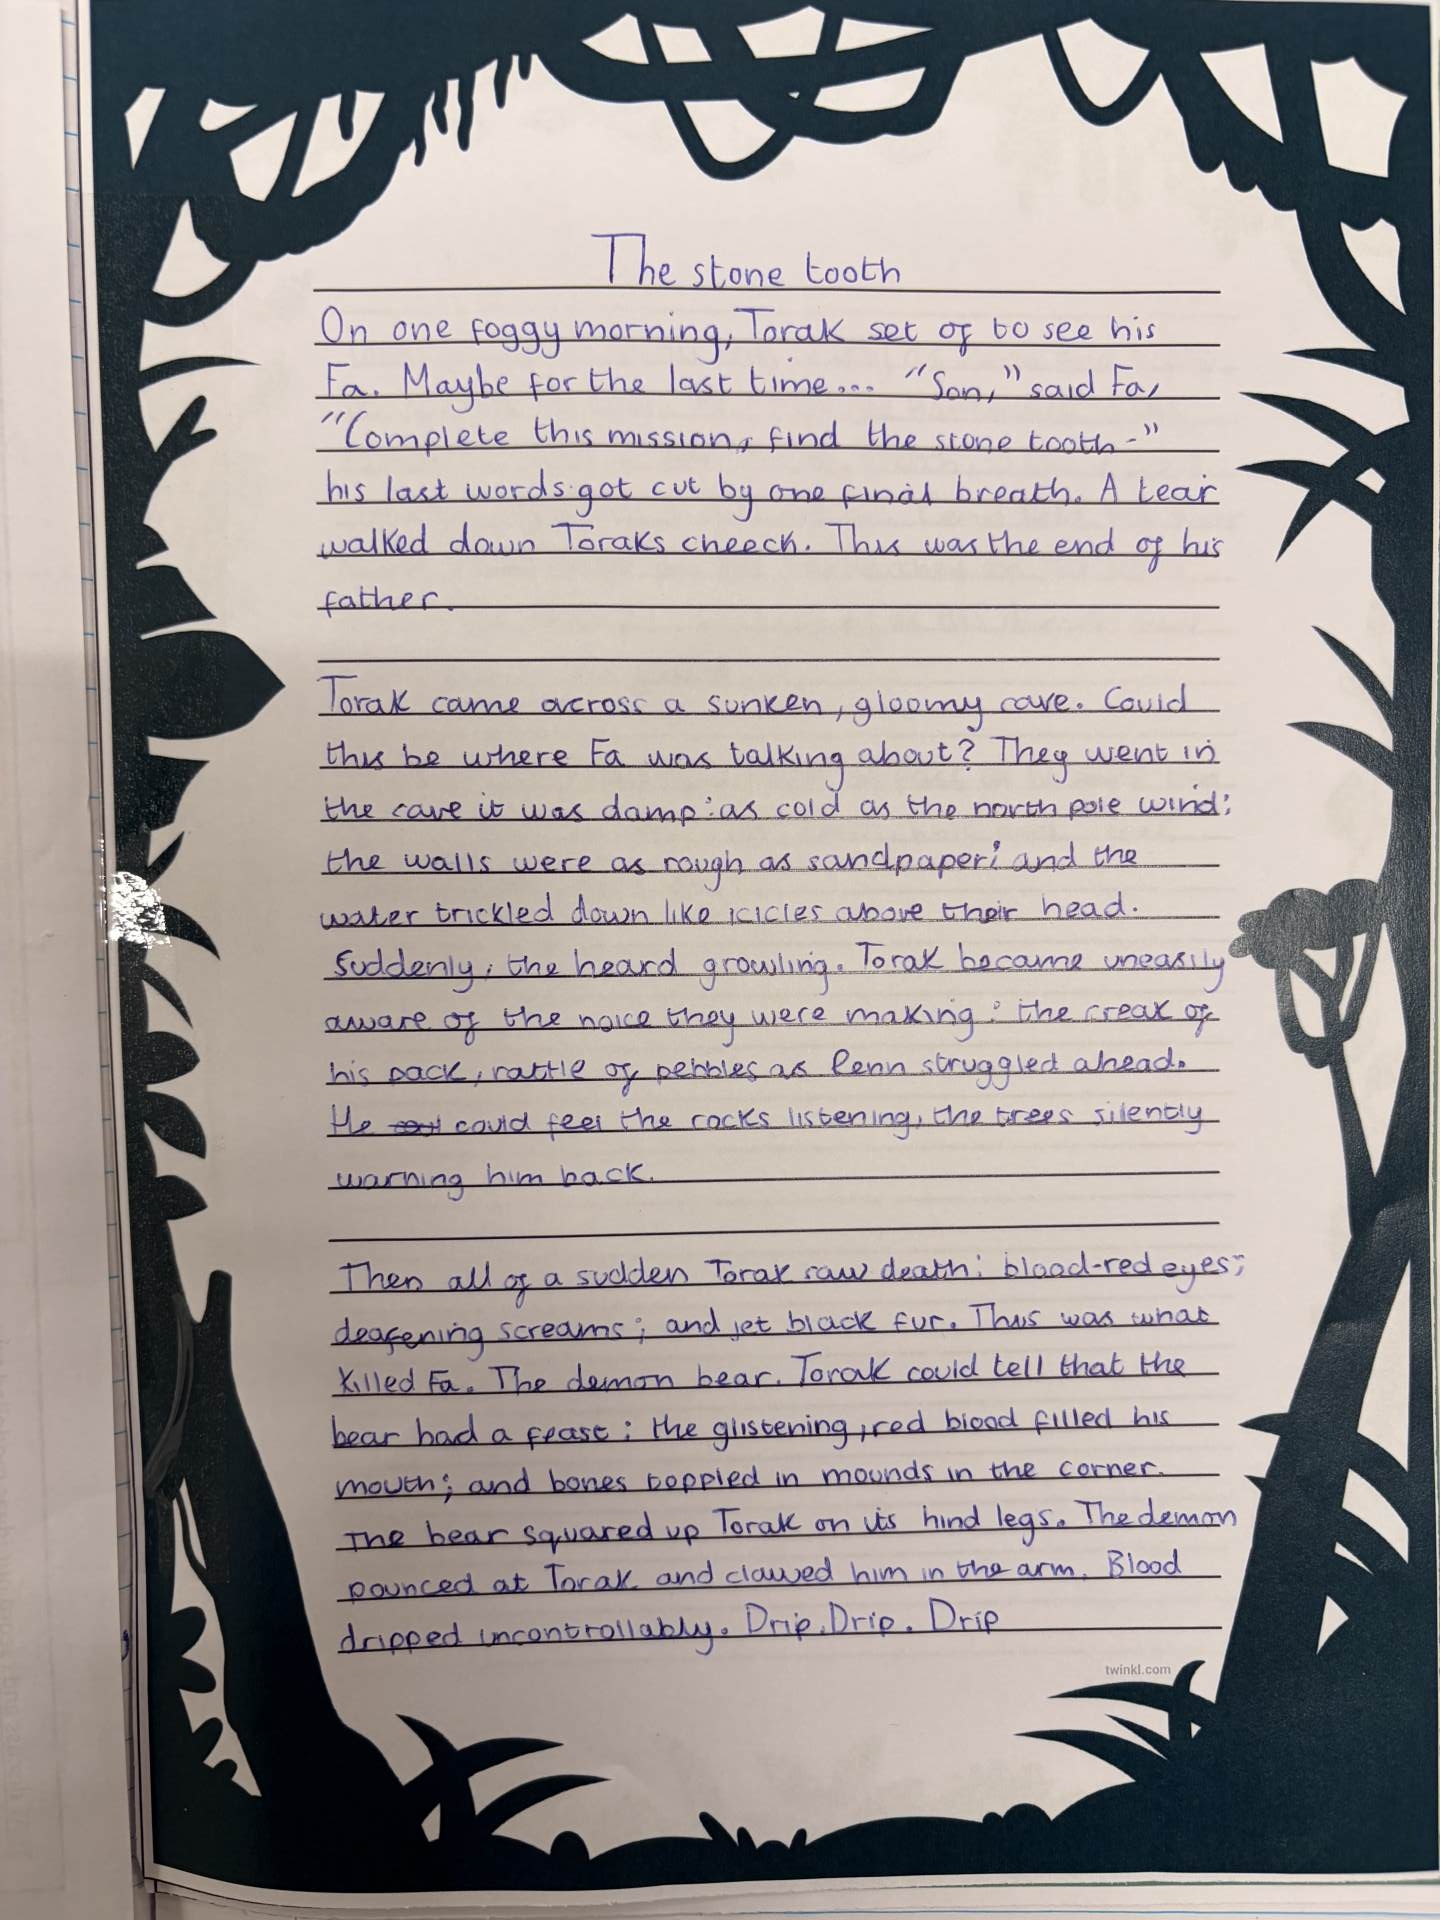 The stone tooth
On one foggy morning, Torak set of to see his
Fa. Maybe for the last time... "Son," said Fa,
"Complete this mission, find the stone tooth-"
his last words got cut by one final breath. A tear
walked down Toraks cheech. This was the end of his
father.
Torak came across a sunken, gloomy cave. Could
this be where Fa was talking about? They went in
the cave it was damp: as cold as the north pole wind;
the walls were as rough as sandpaper; and the
water trickled down like icicles above their head.
Suddenly, the heard growling. Torak became uneasily
aware of the noice they were making: the creak of
his pack, rattle of pebbles as Renn struggled ahead.
He could feel the rocks listening, the trees silently
warning him back.
Then all of a sudden Torak saw death: blood-red eyes;
deafening screams; and jet black fur. This was what
killed Fa. The demon bear. Torak could tell that the
bear had a feast: the glistening, red blood filled his
mouth; and bones toppled in mounds in the corner.
The bear squared up Torak on its hind legs. The demon
pounced at Torak and clawed him in the arm. Blood
dripped uncontrollably. Drip. Drip. Drip
twinkl.com